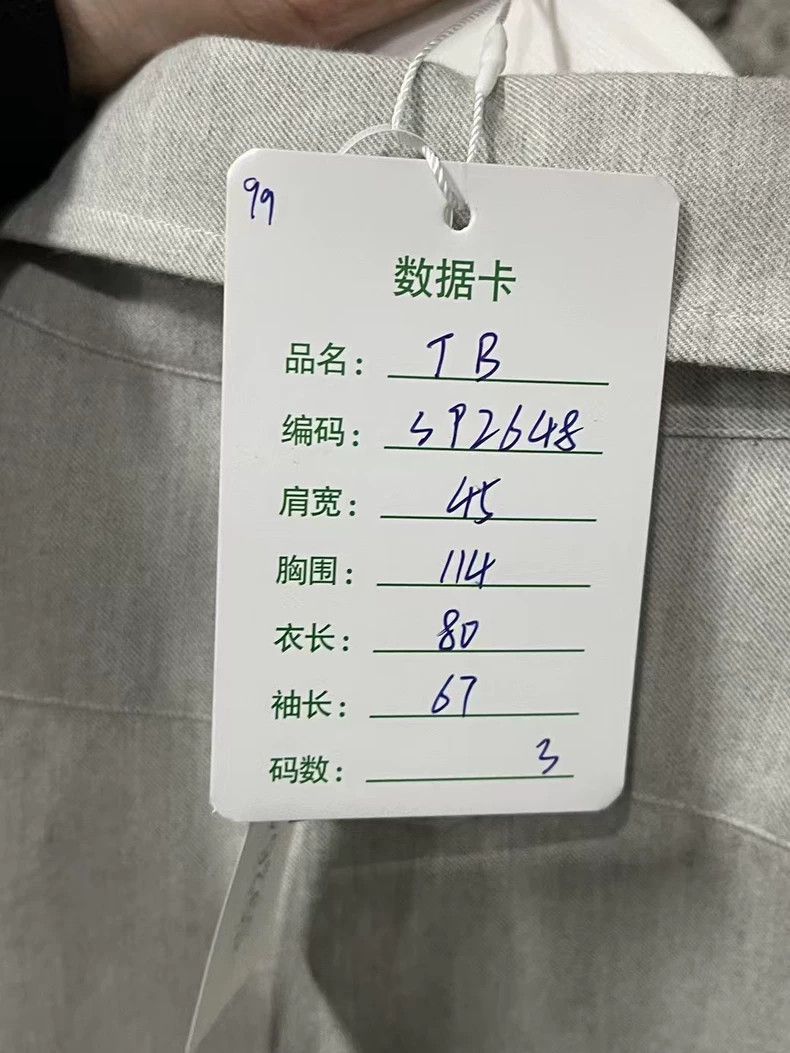 99
数据卡
品名: TB
编码: SP2648
肩宽: 45
胸围: 114
衣长: 80
袖长: 67
码数: 3